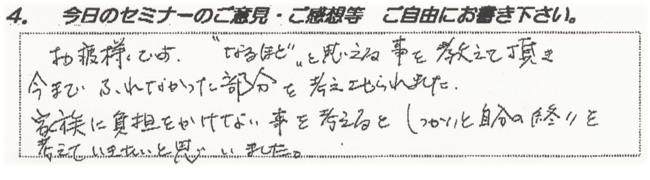 4. 今日のセミナーのご意見・ご感想等 ご自由にお書き下さい。
お疲様です。"なるほど"と思える事を教えて頂き
今まで ふれなかった部分を考えさせられました.
家族に負担をかけない事を考えるとしっかりと自分の終りを
考えていきたいと思いました。